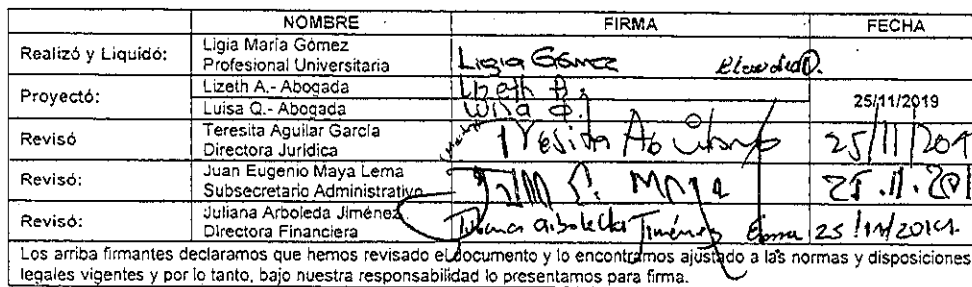 NOMBRE FIRMA FECHA
Realizó y Liquidó: Ligia María Gómez
Profesional Universitaria Ligia Gómez
Proyectó: Lizeth A.- Abogada Lizeth A.
Luisa Q.- Abogada Luisa Q. 25/11/2019
Revisó Teresita Aguilar García
Directora Jurídica Teresita Aguilar 25/11/201
Revisó: Juan Eugenio Maya Lema
Subsecretario Administrativo Maya 25.11.201
Revisó: Juliana Arboleda Jiménez
Directora Financiera Juliana Arboleda Jiménez 25/11/2019.
Los arriba firmantes declaramos que hemos revisado el documento y lo encontramos ajustado a las normas y disposiciones
legales vigentes y por lo tanto, bajo nuestra responsabilidad lo presentamos para firma.